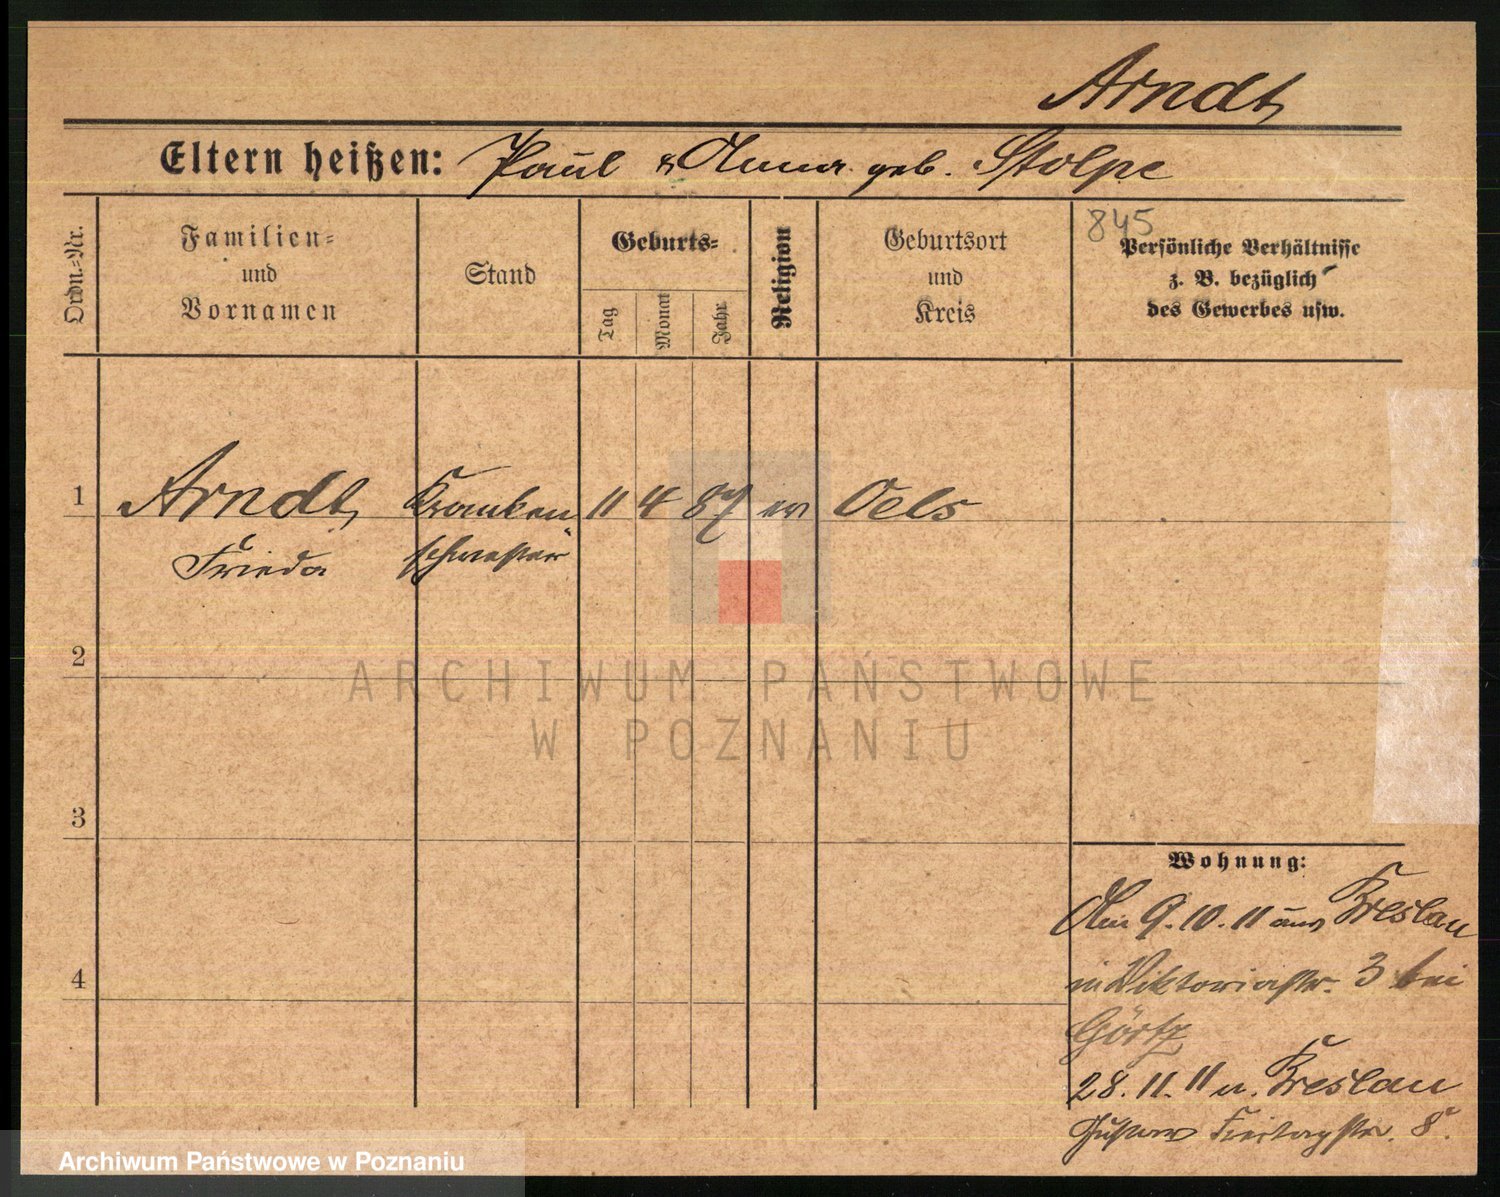 Arndt
Eltern heißen: Paul & Anna geb. Stolpe
Ordn.-Nr.
Familien-
und
Vornamen
Stand
Geburts-
Tag
Monat
Jahr
Religion
Geburtsort
und
Kreis
845
Persönliche Verhältnisse
z. B. bezüglich
des Gewerbes usw.
1 Arndt Kranken 11 4 87 ev Oels
Frieda schwester
2
ARCHIWUM PAŃSTWOWE
W POZNANIU
3
Wohnung:
Am 9.10.11 aus Breslau
in Viktoriastr. 3 bei
4
Görtz
28.11.11 n. Breslau
Gustav Freitagstr. 8.
Archiwum Państwowe w Poznaniu